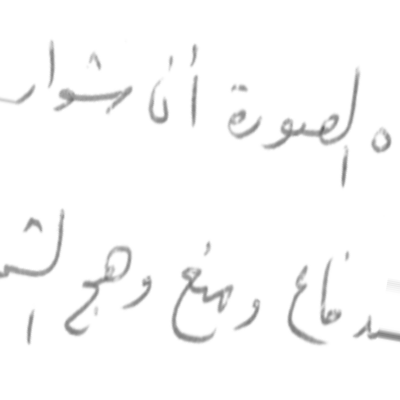 ه الصورة أنا شوار
دفاع ومنع وهج الش